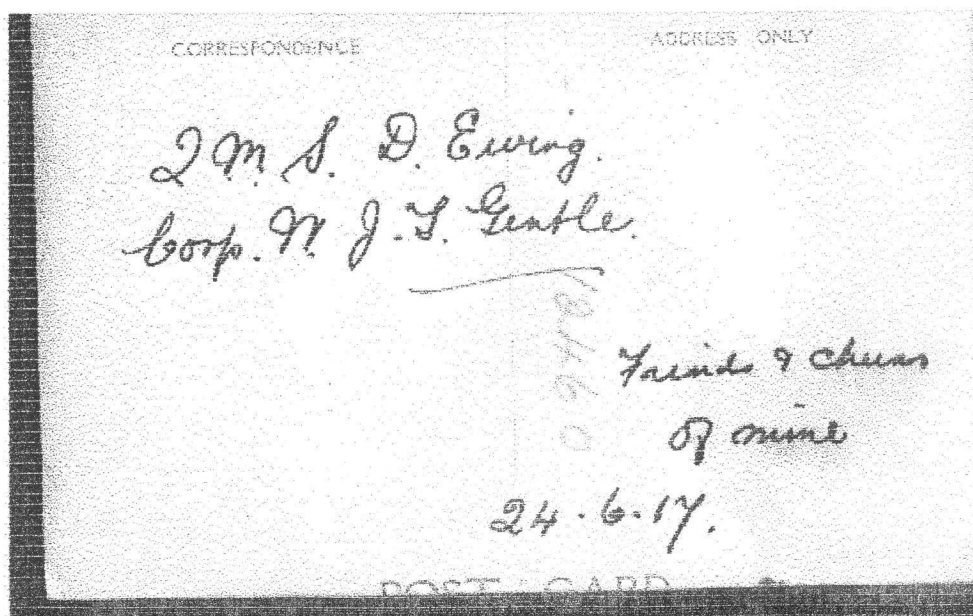 CORRESPONDENCE
ADDRESS ONLY
Q M. S. D. Ewing.
Corp. W. J. T. Gentle.
Freinds & chums
of mine
24.6.17.
POST CARD